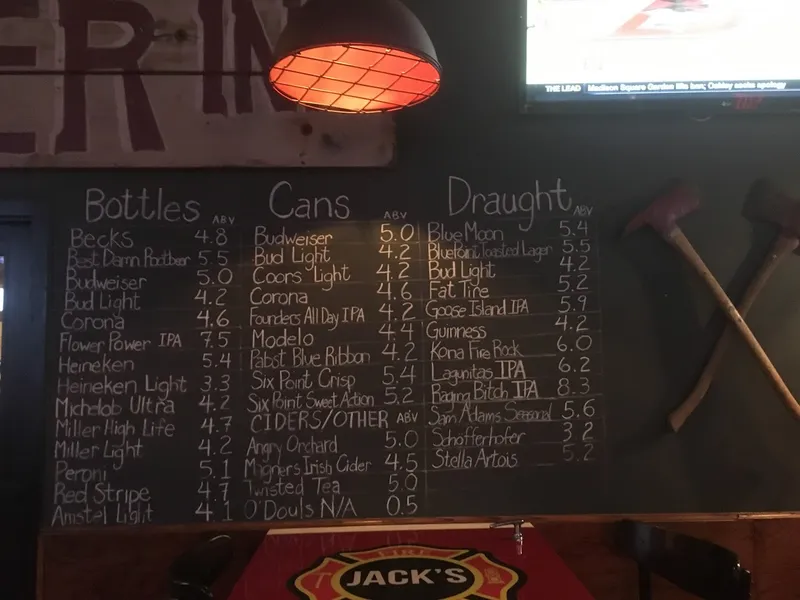 ER IN
THE LEAD Madison Square Garden lifts ban; Oakley awaits apology
Bottles ABV
Becks 4.8
Best Damn Rootbeer 5.5
Budweiser 5.0
Bud Light 4.2
Corona 4.6
Flower Power IPA 7.5
Heineken 5.4
Heineken Light 3.3
Michelob Ultra 4.2
Miller High Life 4.7
Miller Light 4.2
Peroni 5.1
Red Stripe 4.7
Amstel Light 4.1
Cans ABV
Budweiser 5.0
Bud Light 4.2
Coors Light 4.2
Corona 4.6
Founders All Day IPA 4.2
Modelo 4.4
Pabst Blue Ribbon 4.2
Six Point Crisp 5.4
Six Point Sweet Action 5.2
CIDERS/OTHER ABV
Angry Orchard 5.0
Magners Irish Cider 4.5
Twisted Tea 5.0
O'Douls N/A 0.5
Draught ABV
Blue Moon 5.4
Bluepoint Toasted Lager 5.5
Bud Light 4.2
Fat Tire 5.2
Goose Island IPA 5.9
Guinness 4.2
Kona Fire Rock 6.0
Lagunitas IPA 6.2
Raging Bitch IPA 8.3
Sam Adams Seasonal 5.6
Schofferhofer 3.2
Stella Artois 5.2
FIRE
JACK'S